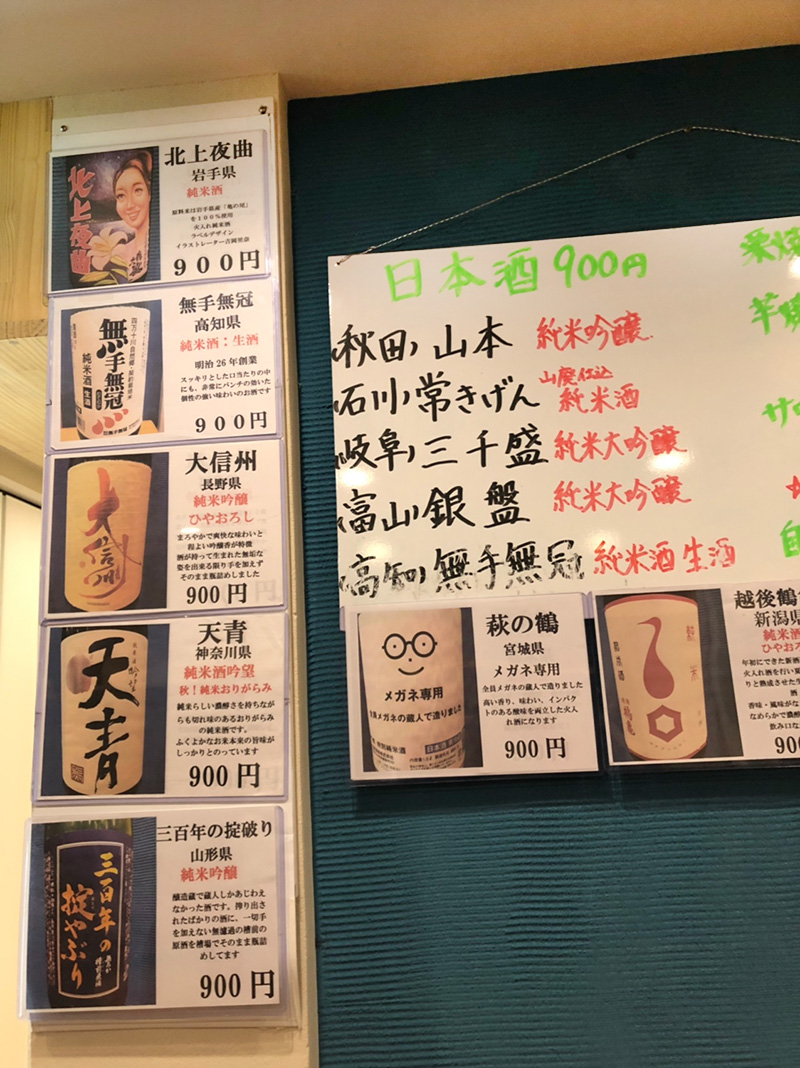 北上夜曲
岩手県
純米酒
原料米は岩手県産「亀の尾」
を100%使用
火入れ純米酒
ラベルデザイン
イラストレーター吉岡里奈
900円
北上夜曲
無手無冠
高知県
純米酒：生酒
明治26年創業
スッキリとした口当たりの中
にも、非常にパンチの効いた
個性の強い味わいのお酒です
900円
無手無冠
純米酒
生酒
大信州
長野県
純米吟醸
ひやおろし
まろやかで爽快な味わいと
程よい吟醸香が特徴
酒が持って生まれた無垢な
姿を出来る限り手を加えず
そのまま瓶詰めしました
900円
大信州
天青
神奈川県
純米酒吟望
秋！純米おりがらみ
純米らしい濃醇さを持ちなが
らも切れ味のあるおりがらみ
の純米酒です。
ふくよかなお米本来の旨味が
しっかりとのっています
900円
天青
三百年の掟破り
山形県
純米吟醸
醸造蔵で蔵人しかあじわえ
なかった酒です。搾り出さ
れたばかりの酒に、一切手
を加えない無濾過の槽前の
原酒を槽場でそのまま瓶詰
めしてます
900円
三百年の
掟やぶり
日本酒 900円
秋田 山本 純米吟醸
石川 常きげん 山廃仕込 純米酒
岐阜 三千盛 純米大吟醸
富山 銀盤 純米大吟醸
高知 無手無冠 純米酒 生酒
萩の鶴
宮城県
メガネ専用
全員メガネの蔵人で造りました
高い香り、味わい、インパク
トのある酸味を両立した火入
れ酒になります
900円
メガネ専用
全員メガネの蔵人で造りました
特別純米酒
日本酒
越後鶴
新潟県
純米酒
ひやおろ
年初にできた新酒
火入れ酒を行い
りと熟成させた生
酒
香味・風味がな
なめらかで濃醇
飲み口な
900